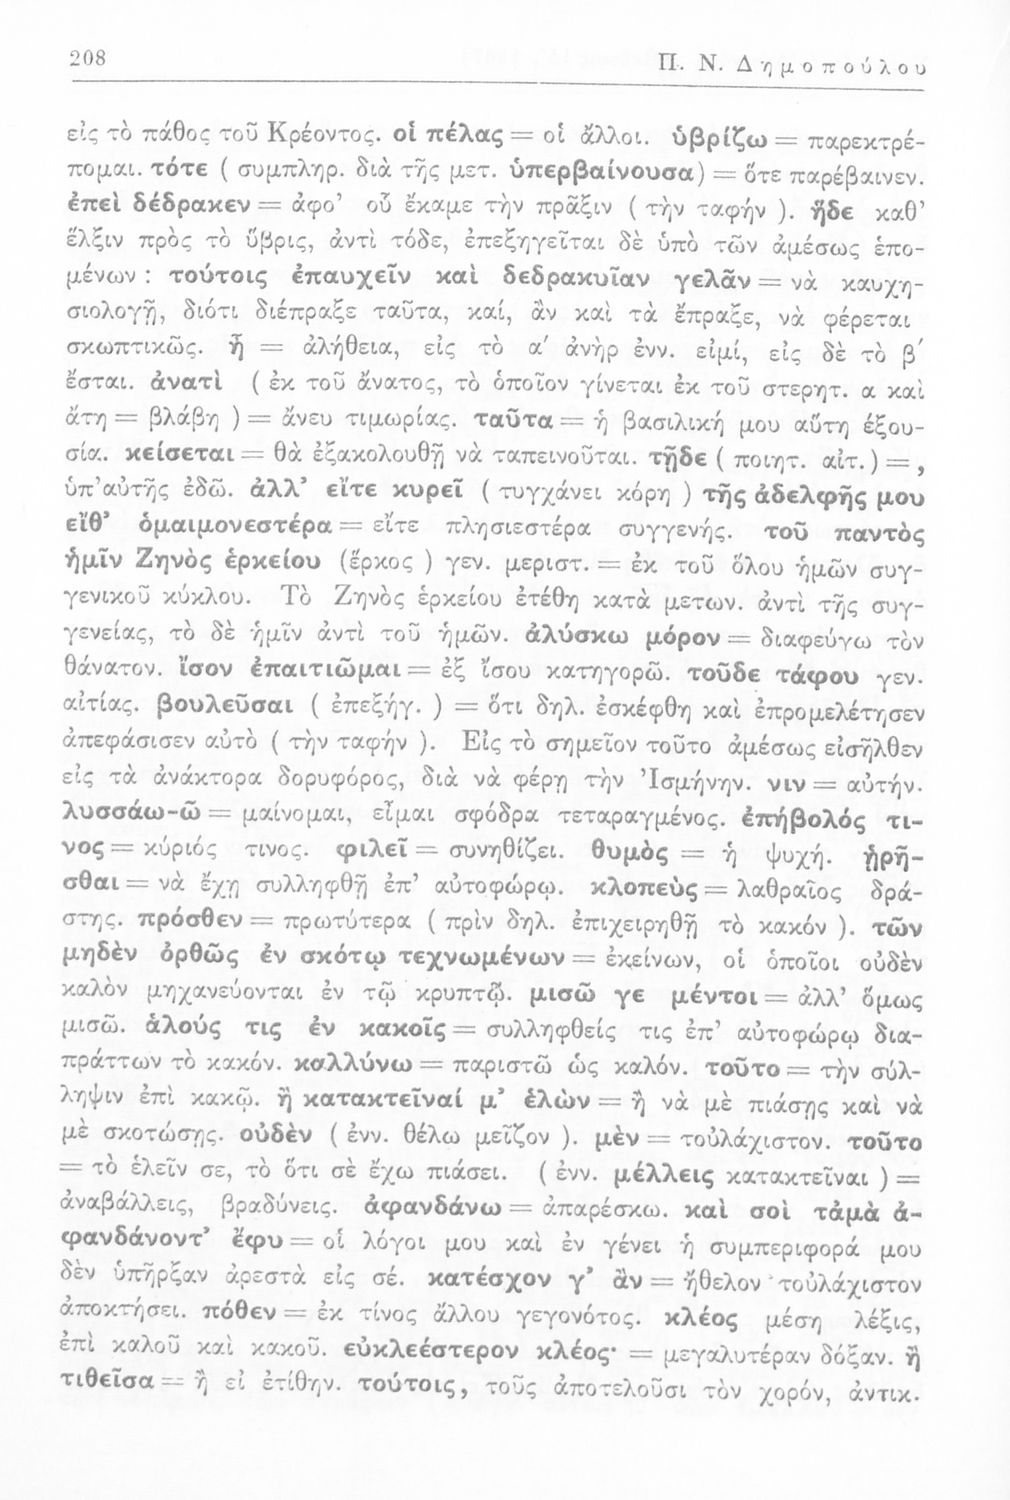 208
Π. Ν. Δημοπούλου
εἰς τὸ πάθος τοῦ Κρέοντος. οἱ πέλας = οἱ ἄλλοι. ὑβρίζω = παρεκτρέ-
πομαι. τότε ( συμπληρ. διὰ τῆς μετ. ὑπερβαίνουσα) = ὅτε παρέβαινεν.
ἐπεὶ δέδρακεν = ἀφο’ οὗ ἔκαμε τὴν πρᾶξιν ( τὴν ταφήν ). ἥδε καθ’
ἕλξιν πρὸς τὸ ὕβρις, ἀντὶ τόδε, ἐπεξηγεῖται δὲ ὑπὸ τῶν ἀμέσως ἑπο-
μένων : τούτοις ἐπαυχεῖν καὶ δεδρακυῖαν γελᾶν = νὰ καυχη-
σιολογῇ, διότι διέπραξε ταῦτα, καί, ἂν καὶ τὰ ἔπραξε, νὰ φέρεται
σκωπτικῶς. ἦ = ἀλήθεια, εἰς τὸ α΄ ἀνὴρ ἐνν. εἰμί, εἰς δὲ τὸ β΄
ἔσται. ἀνατὶ ( ἐκ τοῦ ἄνατος, τὸ ὁποῖον γίνεται ἐκ τοῦ στερητ. α καὶ
ἄτη = βλάβη ) = ἄνευ τιμωρίας. ταῦτα = ἡ βασιλική μου αὕτη ἐξου-
σία. κείσεται = θὰ ἐξακολουθῇ νὰ ταπεινοῦται. τῇδε ( ποιητ. αἰτ.) = ,
ὑπ’αὐτῆς ἐδῶ. ἀλλ’ εἴτε κυρεῖ ( τυγχάνει κόρη ) τῆς ἀδελφῆς μου
εἴθ’ ὁμαιμονεστέρα = εἴτε πλησιεστέρα συγγενής. τοῦ παντὸς
ἡμῖν Ζηνὸς ἑρκείου (ἕρκος ) γεν. μεριστ. = ἐκ τοῦ ὅλου ἡμῶν συγ-
γενικοῦ κύκλου. Τὸ Ζηνὸς ἑρκείου ἐτέθη κατὰ μετων. ἀντὶ τῆς συγ-
γενείας, τὸ δὲ ἡμῖν ἀντὶ τοῦ ἡμῶν. ἀλύσκω μόρον = διαφεύγω τὸν
θάνατον. ἴσον ἐπαιτιῶμαι = ἐξ ἴσου κατηγορῶ. τοῦδε τάφου γεν.
αἰτίας. βουλεῦσαι ( ἐπεξήγ. ) = ὅτι δηλ. ἐσκέφθη καὶ ἐπρομελέτησεν
ἀπεφάσισεν αὐτὸ ( τὴν ταφήν ). Εἰς τὸ σημεῖον τοῦτο ἀμέσως εἰσῆλθεν
εἰς τὰ ἀνάκτορα δορυφόρος, διὰ νὰ φέρῃ τὴν Ἰσμήνην. νιν = αὐτήν.
λυσσάω-ῶ = μαίνομαι, εἶμαι σφόδρα τεταραγμένος. ἐπήβολός τι-
νος = κύριός τινος. φιλεῖ = συνηθίζει. θυμὸς = ἡ ψυχή. ᾑρῆ-
σθαι = νὰ ἔχῃ συλληφθῆ ἐπ’ αὐτοφώρῳ. κλοπεὺς = λαθραῖος δρά-
στης. πρόσθεν = πρωτύτερα ( πρὶν δηλ. ἐπιχειρηθῇ τὸ κακόν ). τῶν
μηδὲν ὀρθῶς ἐν σκότῳ τεχνωμένων = ἐκείνων, οἱ ὁποῖοι οὐδὲν
καλὸν μηχανεύονται ἐν τῷ κρυπτῷ. μισῶ γε μέντοι = ἀλλ’ ὅμως
μισῶ. ἁλούς τις ἐν κακοῖς = συλληφθείς τις ἐπ’ αὐτοφώρῳ δια-
πράττων τὸ κακόν. καλλύνω = παριστῶ ὡς καλόν. τοῦτο = τὴν σύλ-
ληψιν ἐπὶ κακῷ. ἢ κατακτεῖναί μ’ ἑλὼν = ἢ νὰ μὲ πιάσῃς καὶ νὰ
μὲ σκοτώσῃς. οὐδὲν ( ἐνν. θέλω μεῖζον ). μὲν = τοὐλάχιστον. τοῦτο
= τὸ ἑλεῖν σε, τὸ ὅτι σὲ ἔχω πιάσει. ( ἐνν. μέλλεις κατακτεῖναι ) =
ἀναβάλλεις, βραδύνεις. ἀφανδάνω = ἀπαρέσκω. καὶ σοὶ τἀμὰ ἀ-
φανδάνοντ’ ἔφυ = οἱ λόγοι μου καὶ ἐν γένει ἡ συμπεριφορά μου
δὲν ὑπῆρξαν ἀρεστὰ εἰς σέ. κατέσχον γ’ ἂν = ἤθελον τοὐλάχιστον
ἀποκτήσει. πόθεν = ἐκ τίνος ἄλλου γεγονότος. κλέος μέση λέξις,
ἐπὶ καλοῦ καὶ κακοῦ. εὐκλεέστερον κλέος· = μεγαλυτέραν δόξαν. ἢ
τιθεῖσα = ἢ εἰ ἐτίθην. τούτοις, τοῦς ἀποτελοῦσι τὸν χορόν, ἀντικ.